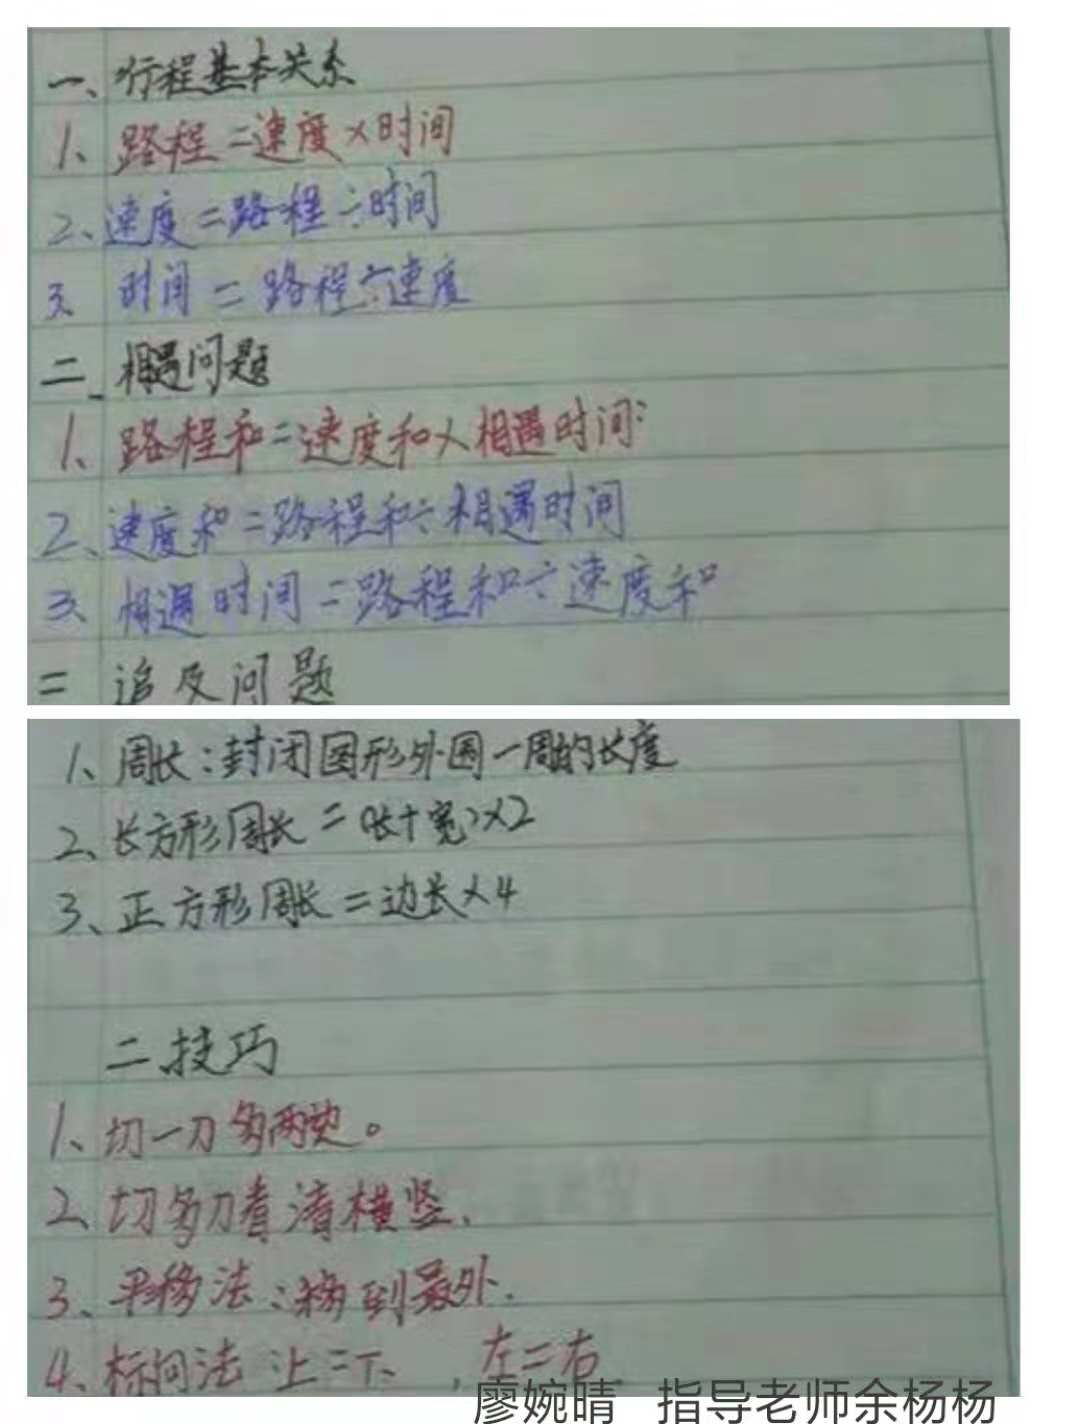 一、行程基本关系
1、路程=速度×时间
2、速度=路程÷时间
3、时间=路程÷速度
二、相遇问题
1、路程和=速度和×相遇时间
2、速度和=路程和÷相遇时间
3、相遇时间=路程和÷速度和
三 追及问题
1、周长:封闭图形外围一周的长度
2、长方形周长=(长+宽)×2
3、正方形周长=边长×4
二、技巧
1、切一刀多两边。
2、切多刀看清横竖、
3、平移法:移到最外.
4、标向法 上=下、,左=右
廖婉晴 指导老师余杨杨